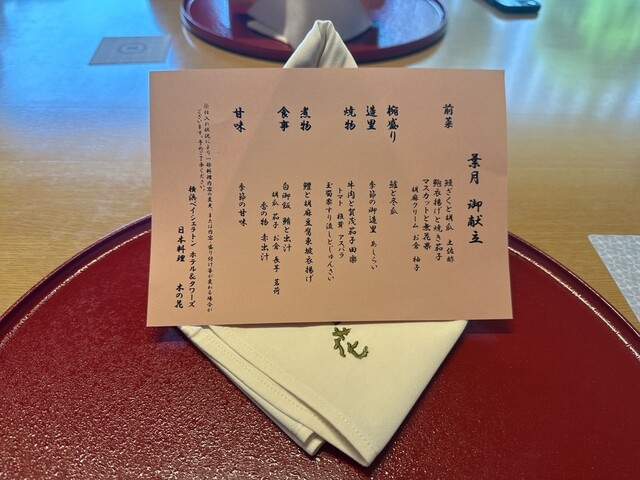 葉月 御献立
前菜
鰻ざくと胡瓜 土佐酢
鮑衣揚げと焼き茄子
マスカットと無花果
胡麻クリーム お倉 柚子
椀盛り
鱧と冬瓜
造里
季節の御造里 あしらい
焼物
牛肉と賀茂茄子田楽
トマト 椎茸 アスパラ
玉蜀黍すり流しとじゅんさい
煮物
鰻と胡麻豆腐東坡衣揚げ
食事
白御飯 鯖と出汁
胡瓜 茄子 お倉 長芋 茗荷
香の物 赤出汁
甘味
季節の甘味
※仕入れ状況により一部料理内容の変更、または内容・盛り付け等が変わる場合が
ございます。予めご了承ください。
横浜ベイシェラトン ホテル&タワーズ
日本料理 木の花
花